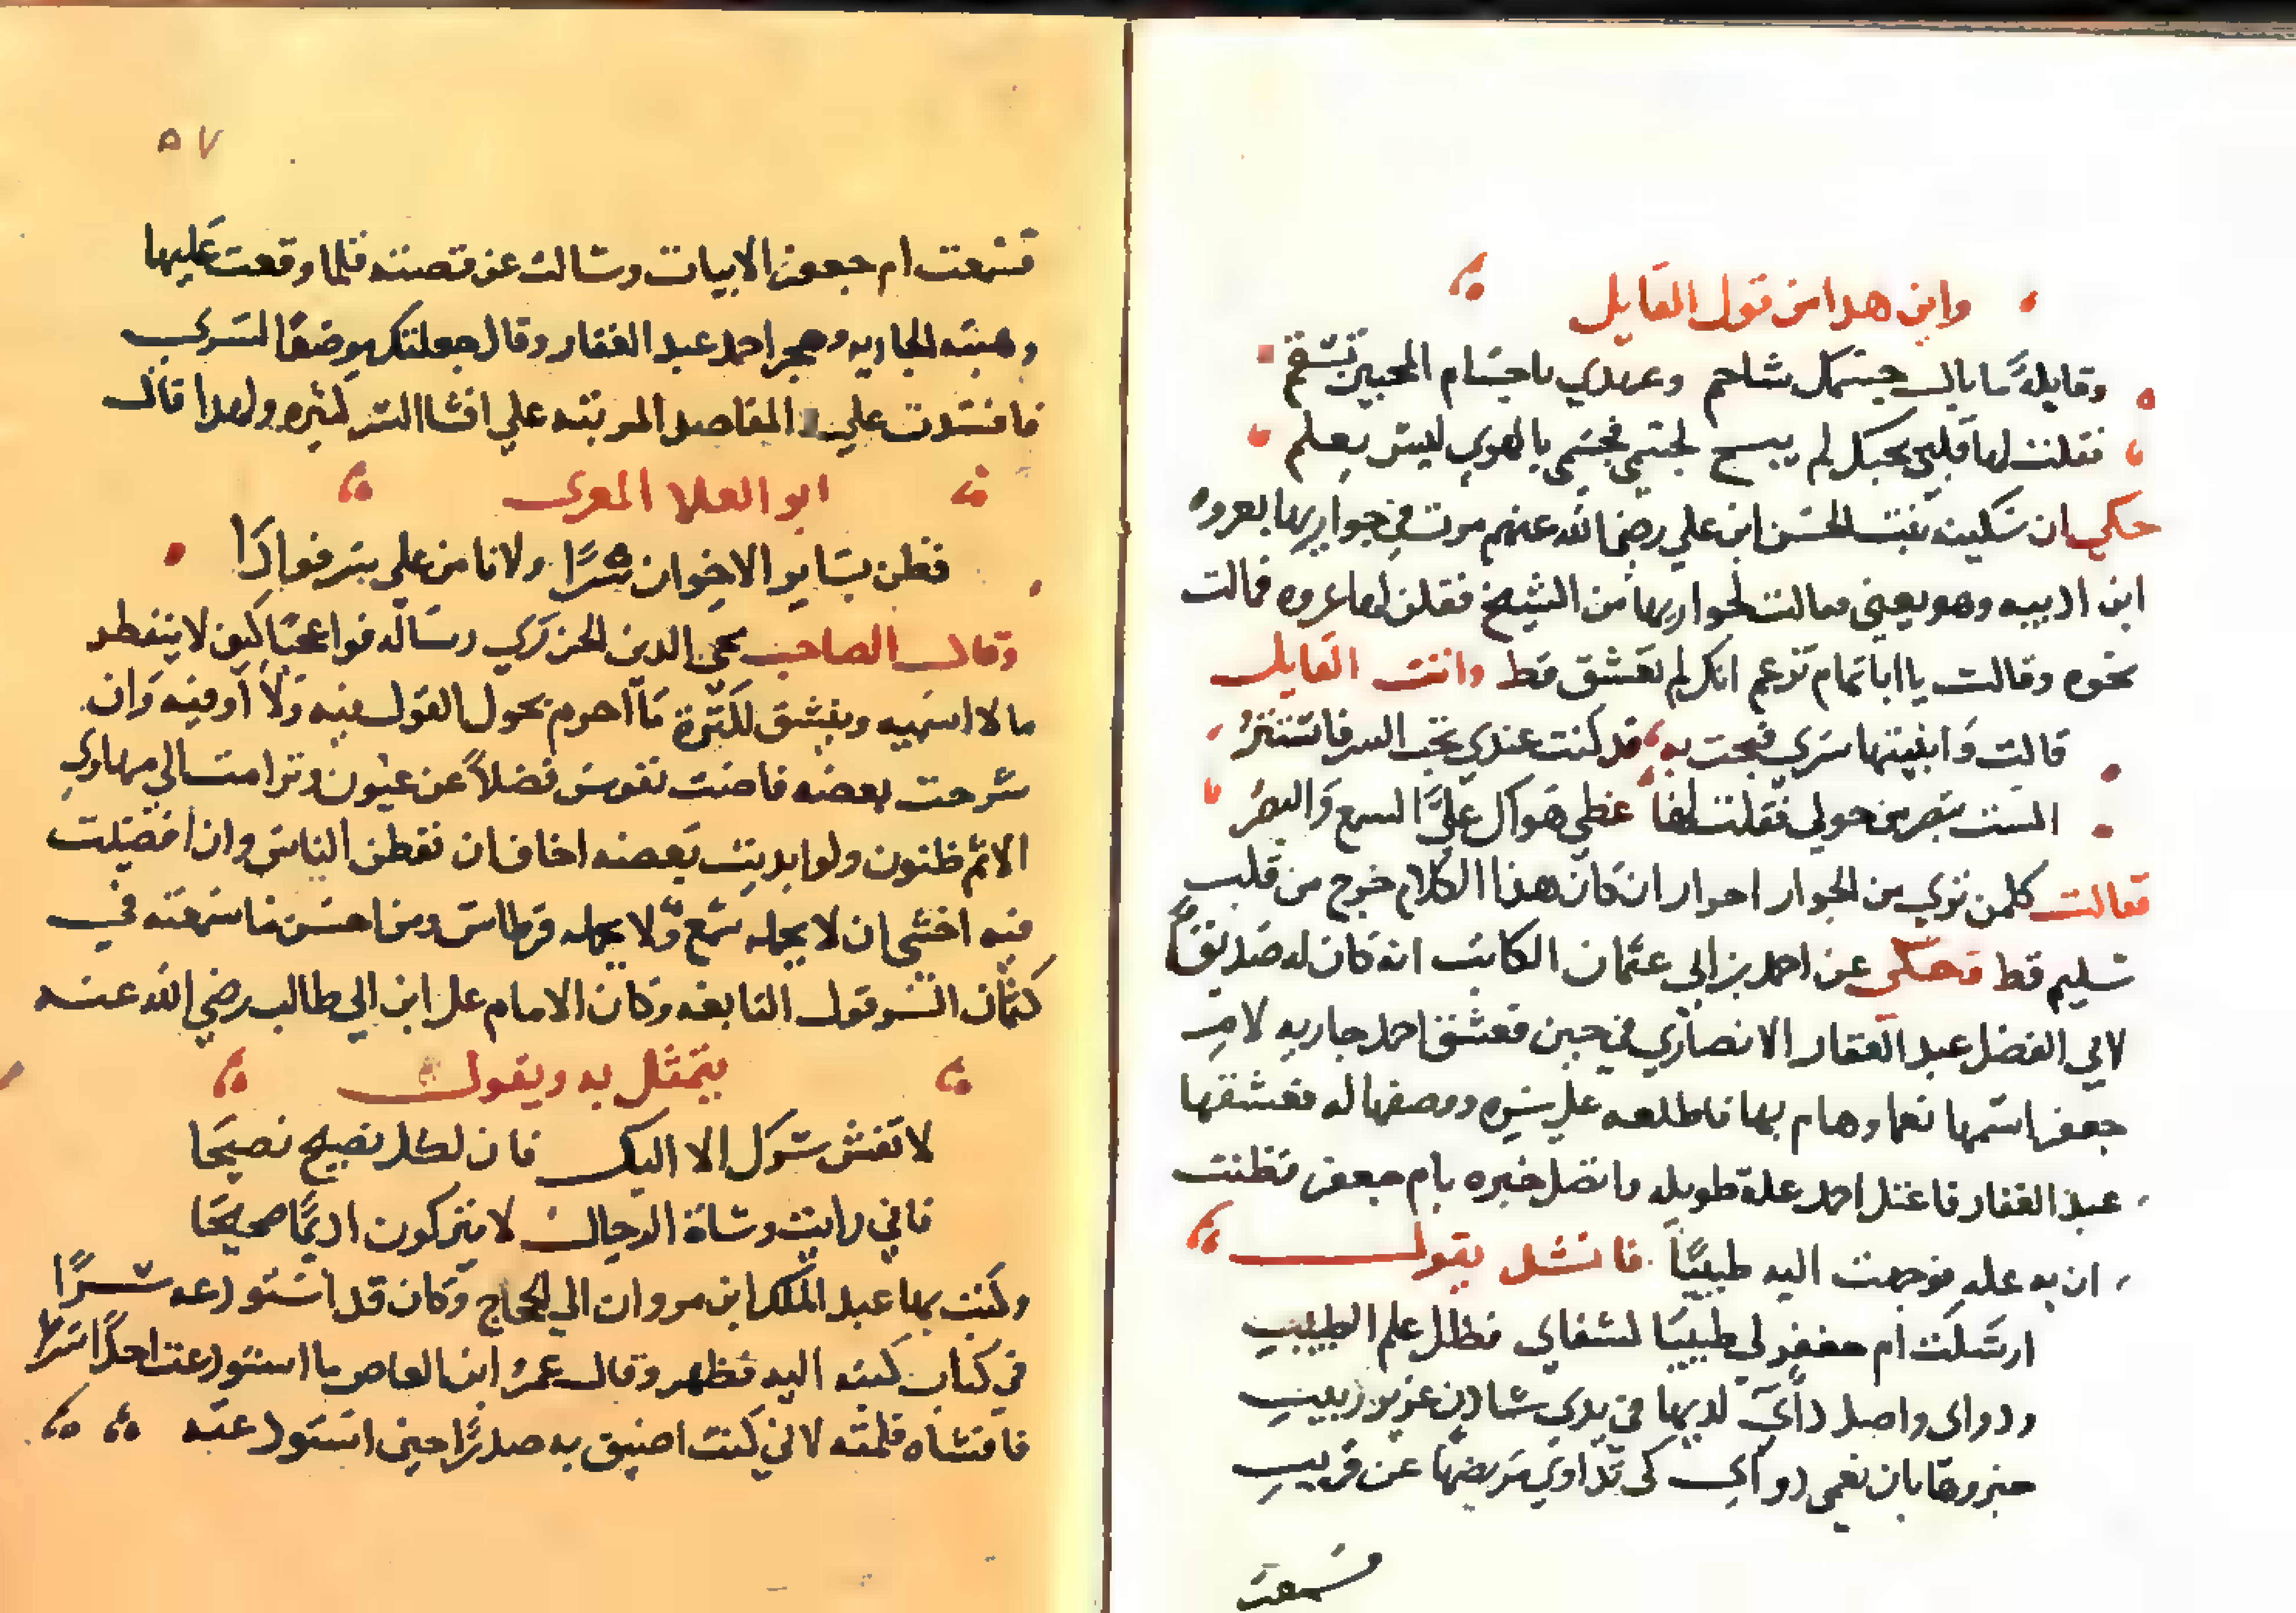 واين هدا من قول القايل
وقايلة ما بال جسمك شاحم وعهدي باجسام المحبين تسقم
فقلت لها قلبي بحبك لم يبح لجسمي فجسمي بالهوي ليس يعلم
حكي ان سكينه بنت الحسن ابن علي رضي الله عنهم مرت في جواريها بعروه
ابن ادبيه وهو يغني فقالت لجواريها من الشيخ فقلن لها عروه فمالت
نحوه وقالت يا ابا تمام تزعم انك لم تعشق قط وانت القايل
قالت وابثيتها سري فبحت به قد كنت عندي تحب السر فاستتر
الست تبصر من حولي فقلت لها غطي هواك علي السمع والبصر
فقالت كلمن تري من الجوار احرار ان كان هذا الكلام خرج من قلب
سليم قط وحكي عن احمد بن ابي عثمان الكاتب انه كان له صديقا
لابي الفضل عبد الغفار الانصاري في حين فعشق احمد جاريه لام
جعفر اسمها نعما وهام بها فاطلعه علي سره ووصفها له فعشقها
عبد الغفار فاعتل احمد علة طويله واتصل خبره بام جعفر فظنت
ان به عله فوجهت اليه طبيبًا فانشل يقول
ارسلت ام جعفر لي طبيبا لشفاي فظل علم الطبيب
ودواي واصل داي لديها في يدي شادن عزيز ربيب
خبروها بان نعمي دواي كي تداوي مريضها عن قريب
فسمعت
٥٧
فسمعت ام جعفر الابيات وسالت عن قصته فلما وقعت عليها
وهبته الجاريه وهجر احمد عبد الغفار وقال جعلتك موضعًا لسري
فافسدت علي المقاصد المرتبه علي افشا السر كثيره ولهدا قال
ابو العلا المعرى
فظن بساير الاخوان شرًا ولا تامن علي سر فوادًا
وقال الصاحب محي الدين الجزركي رساله فواعجبًا كيف لا ينفطر
ما لا اسميه وينشق لكثرة ما احرم بحول القول فيه ولا اوفيه وان
شرحت بعضه فاضت نفوس فضلاً عن عيون وترامت الي مهاوي
الاثم ظنون ولو ابديت بعضه اخاف ان تفطن الناس وان افضيلت
فيه اخشي ان لا يحمله سمع ولا يحمله قرطاس ومن احسن ما سمعته في
كتمان السر قول النابغه وكان الامام علي ابن ابي طالب رضي الله عنه
يتمثل به ويقول
لا تفش سرك الا اليك فان لكل نصيح نصيحا
فاني رايت وشاة الرجال لا يتركون اديمًا صحيحا
وكتب بها عبد الملك ابن مروان الي الحجاج وكان قد استودعه سرًا
في كتاب كتبه اليه فظهر وقال عمر ابن العاص ما استودعت احدًا سرا
فافشاه فلمته لاني كنت اضيق به صدرًا حين استودعته